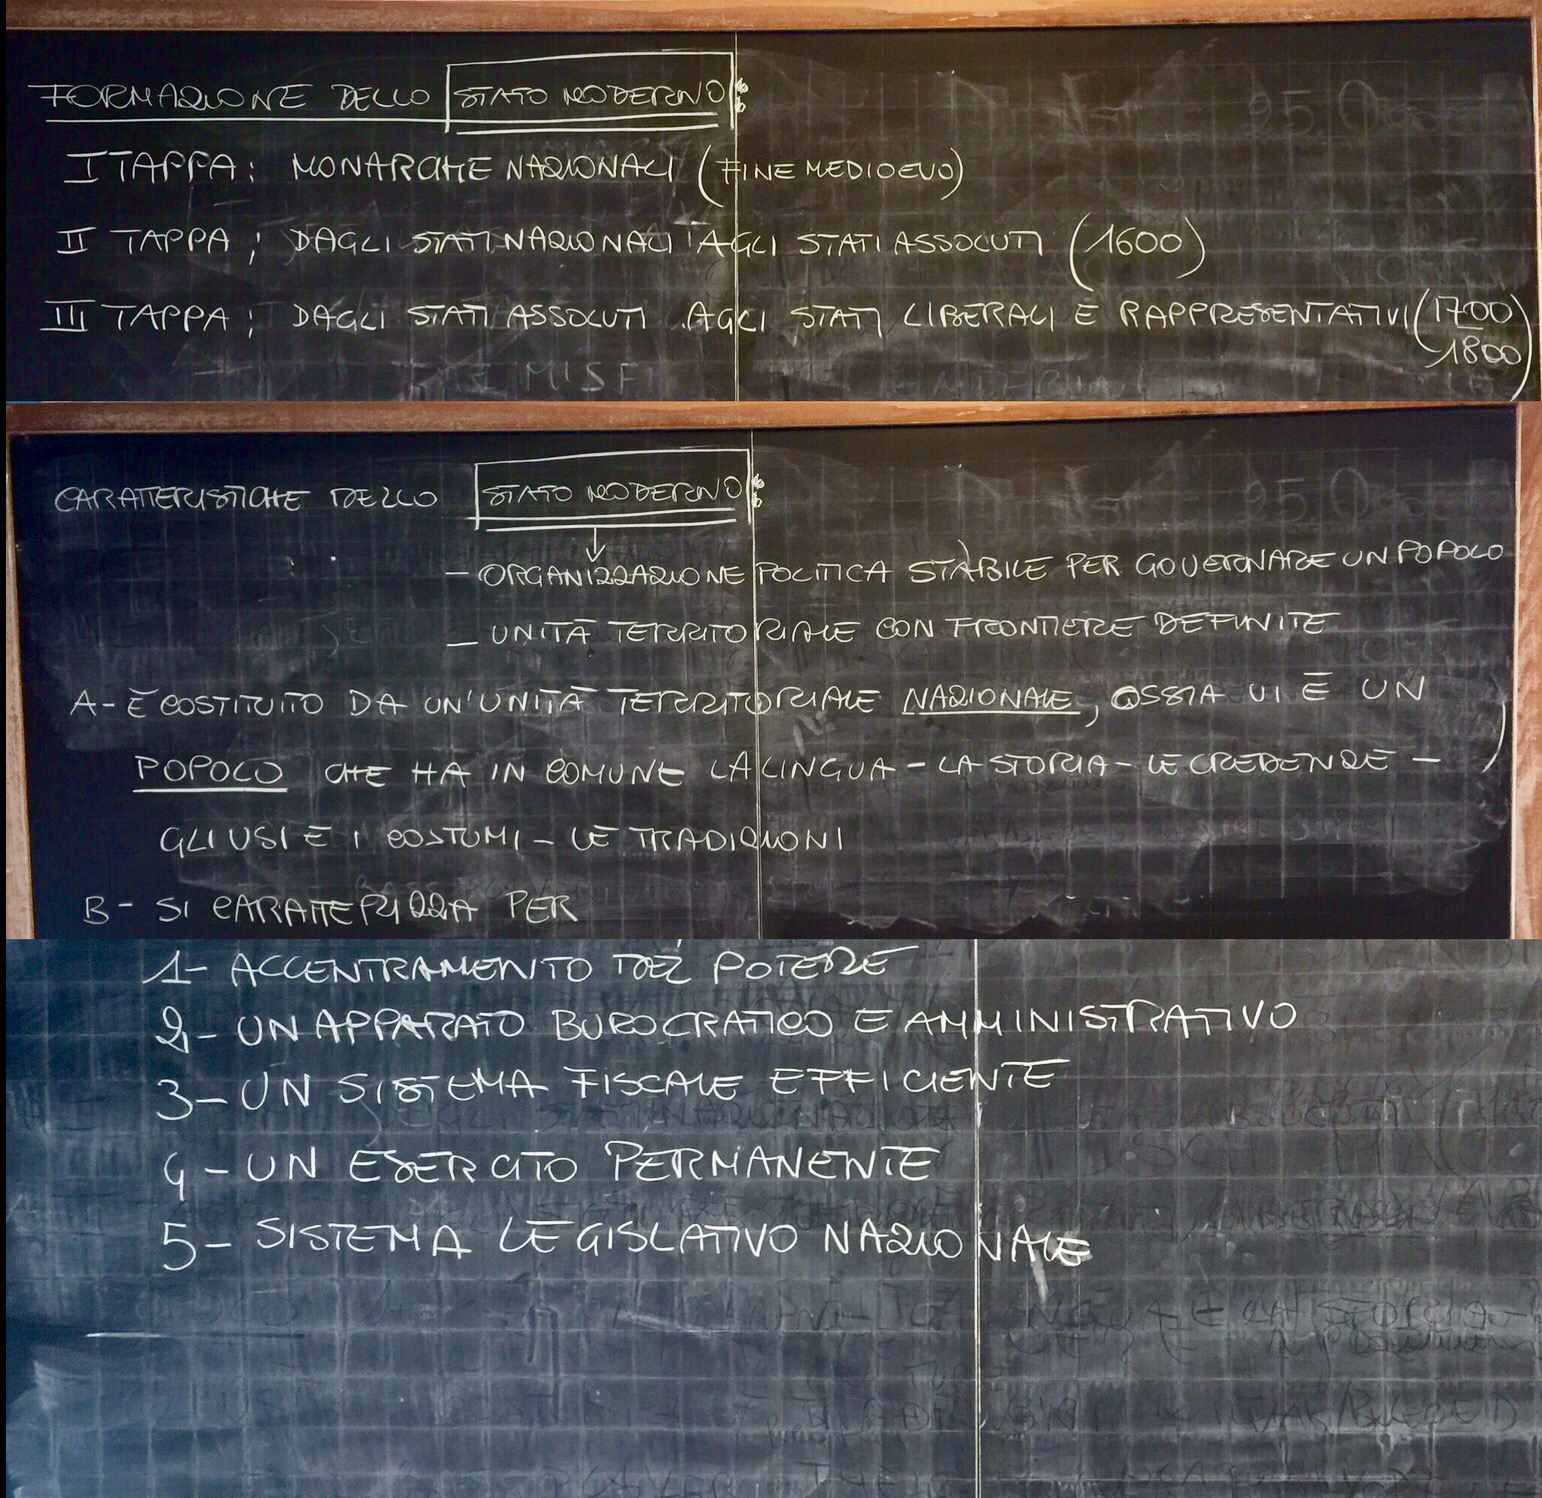 FORMAZIONE DELLO STATO MODERNO:
I TAPPA: MONARCHIE NAZIONALI (FINE MEDIOEVO)
II TAPPA: DAGLI STATI NAZIONALI AGLI STATI ASSOLUTI (1600)
III TAPPA: DAGLI STATI ASSOLUTI AGLI STATI LIBERALI E RAPPRESENTATIVI (1700
1800)
CARATTERISTICHE DELLO STATO MODERNO:
- ORGANIZZAZIONE POLITICA STABILE PER GOVERNARE UN POPOLO
- UNITÀ TERRITORIALE CON FRONTIERE DEFINITE
A- È COSTITUITO DA UN'UNITÀ TERRITORIALE NAZIONALE, OSSIA VI È UN
POPOLO CHE HA IN COMUNE LA LINGUA - LA STORIA - LE CREDENZE -
GLI USI E I COSTUMI - LE TRADIZIONI
B- SI CARATTERIZZA PER
1- ACCENTRAMENTO DEL POTERE
2- UN APPARATO BUROCRATICO E AMMINISTRATIVO
3- UN SISTEMA FISCALE EFFICIENTE
4- UN ESERCITO PERMANENTE
5- SISTEMA LEGISLATIVO NAZIONALE